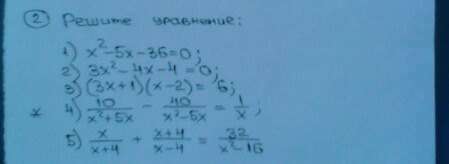 ② Решите уравнение:
1) x²-5x-36=0;
2) 3x²-4x-4=0;
3) (3x+1)(x-2)=6;
* 4) 10/(x²+5x) - 40/(x²-5x) = 1/x;
5) x/(x+4) + (x+4)/(x-4) = 32/(x²-16)